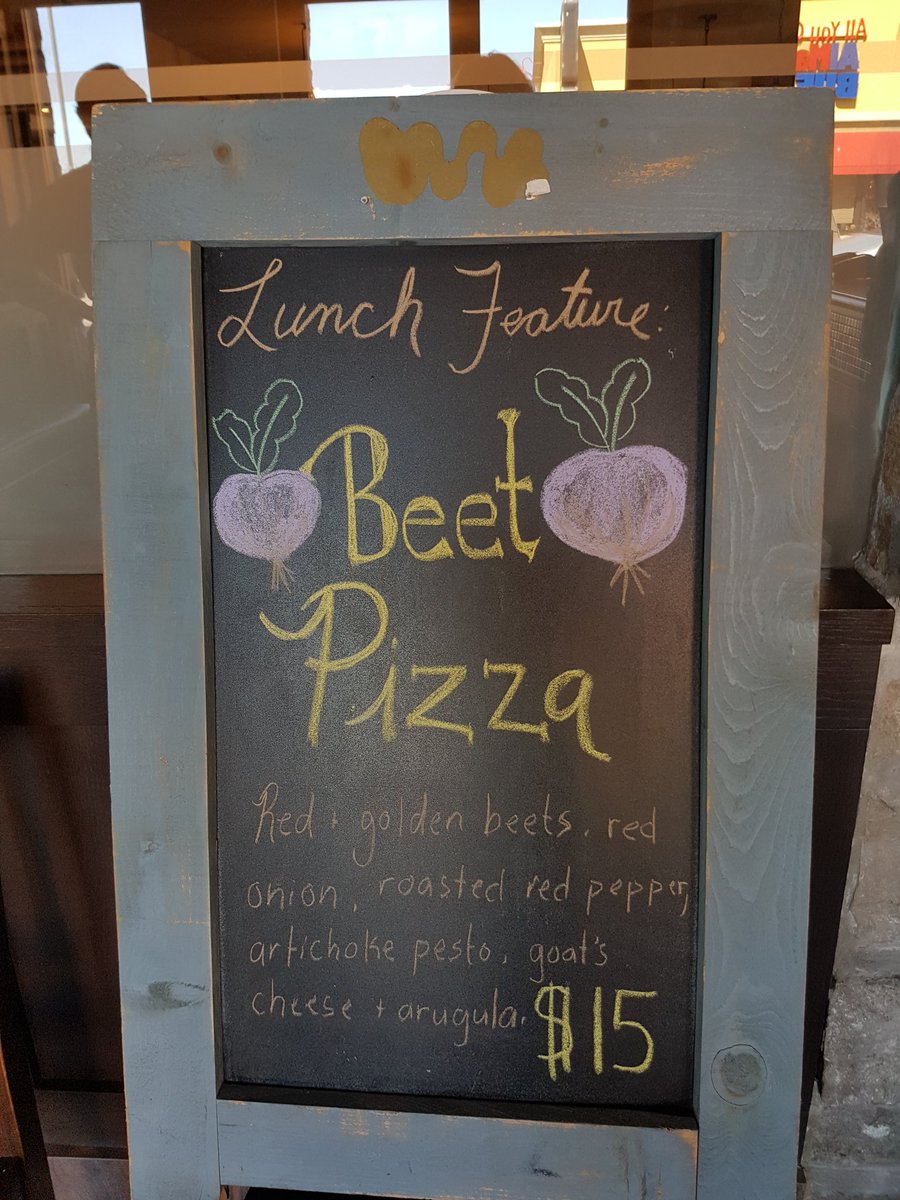 All You C
Lunch Feature:
Beet
Pizza
Red + golden beets, red
onion, roasted red pepper,
artichoke pesto, goat's
cheese + arugula.
$15